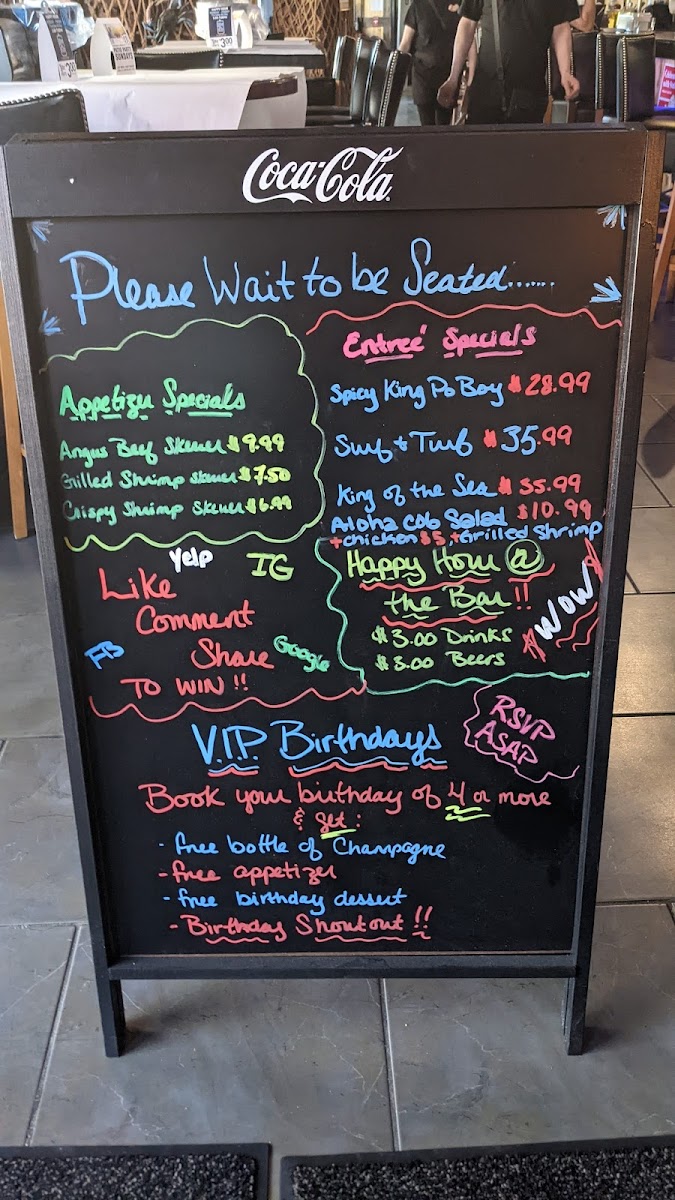 Coca-Cola
Please Wait to be Seated.......
Appetizer Specials
Angus Beef Skewer $9.99
Grilled Shrimp Skewer $7.50
Crispy Shrimp Skewer $6.99
Entreé Specials
Spicy King Po Boy $28.99
Surf + Turf $35.99
King of the Sea $35.99
Aloha Cob Salad $10.99
+chicken $5, +Grilled Shrimp
Yelp
IG
Like
Comment
Share
FB
Google
TO WIN!!
Happy Hour @
the Bar!!
$3.00 Drinks
$3.00 Beers
$WOW$
V.I.P Birthdays
RSVP
ASAP
Book your birthday of 4 or more
& get:
- free bottle of Champagne
- free appetizer
- free birthday dessert
- Birthday Shoutout!!